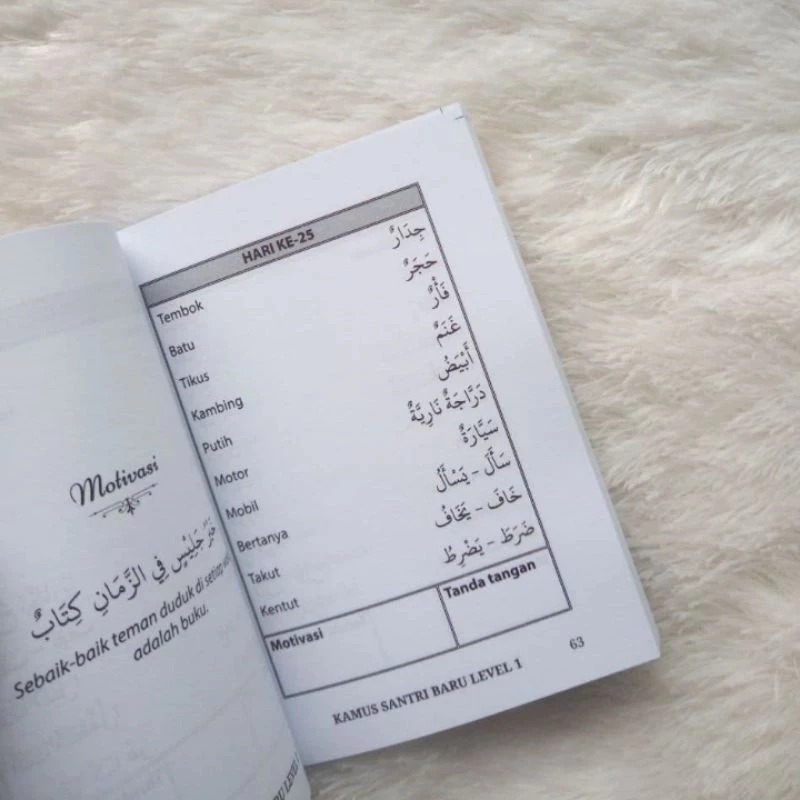 Motivasi
خَيْرُ جَلِيْسٍ فِي الزَّمَانِ كِتَابٌ
Sebaik-baik teman duduk di setiap
adalah buku.
HARI KE-25
Tembok جِدَارٌ
Batu حَجَرٌ
Tikus فَأْرٌ
Kambing غَنَمٌ
Putih أَبْيَضُ
Motor دَرَّاجَةٌ نَارِيَّةٌ
Mobil سَيَّارَةٌ
Bertanya سَأَلَ - يَسْأَلُ
Takut خَافَ - يَخَافُ
Kentut ضَرَطَ - يَضْرِطُ
Motivasi Tanda tangan
KAMUS SANTRI BARU LEVEL 1 63